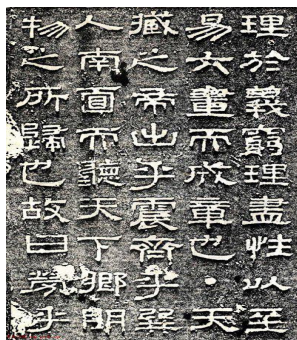 理於義窮理盡性以至
易六畫而成章也·天
藏之帝出乎震齊乎巽
人南面而聽天下鄉明
物之所歸也故曰勞乎